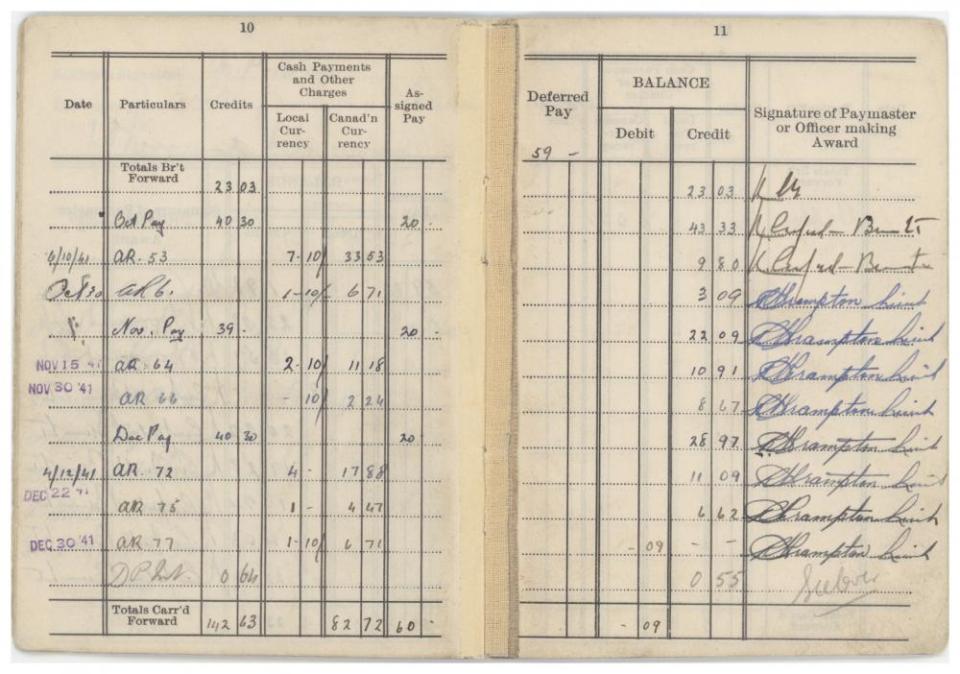 10
Date Particulars Credits Cash Payments and Other Charges Local Currency Canad'n Currency Assigned Pay
Totals Br't Forward 23 03
Oct Pay 40 30 20 -
6/10/41 AR. 53 7-10/ 33 53
Oct 30 AR 6. 1-10/- 6 71
Nov. Pay 39 - 20 -
NOV 15 '41 AR 64 2-10/ 11 18
NOV 30 '41
AR 66 - 10/ 2 24
Dec Pay 40 30 20 -
4/12/41 AR. 72 4 - 17 88
DEC 22 '41
AR 75 1 - 4 47
DEC 30 '41 AR 77 1-10/ 6 71
0 64
Totals Carr'd Forward 142 63 82 72 60 -
11
Deferred Pay BALANCE Debit Credit Signature of Paymaster or Officer making Award
59 -
23 03
43 33
9 80
3 09 Hrampton Lieut
22 09 Hrampton Lieut
10 91 Hrampton Lieut
8 67 Hrampton Lieut
28 97 Hrampton Lieut
11 09 Hrampton Lieut
6 62 Hrampton Lieut
- 09 - - Hrampton Lieut
0 55
- 09